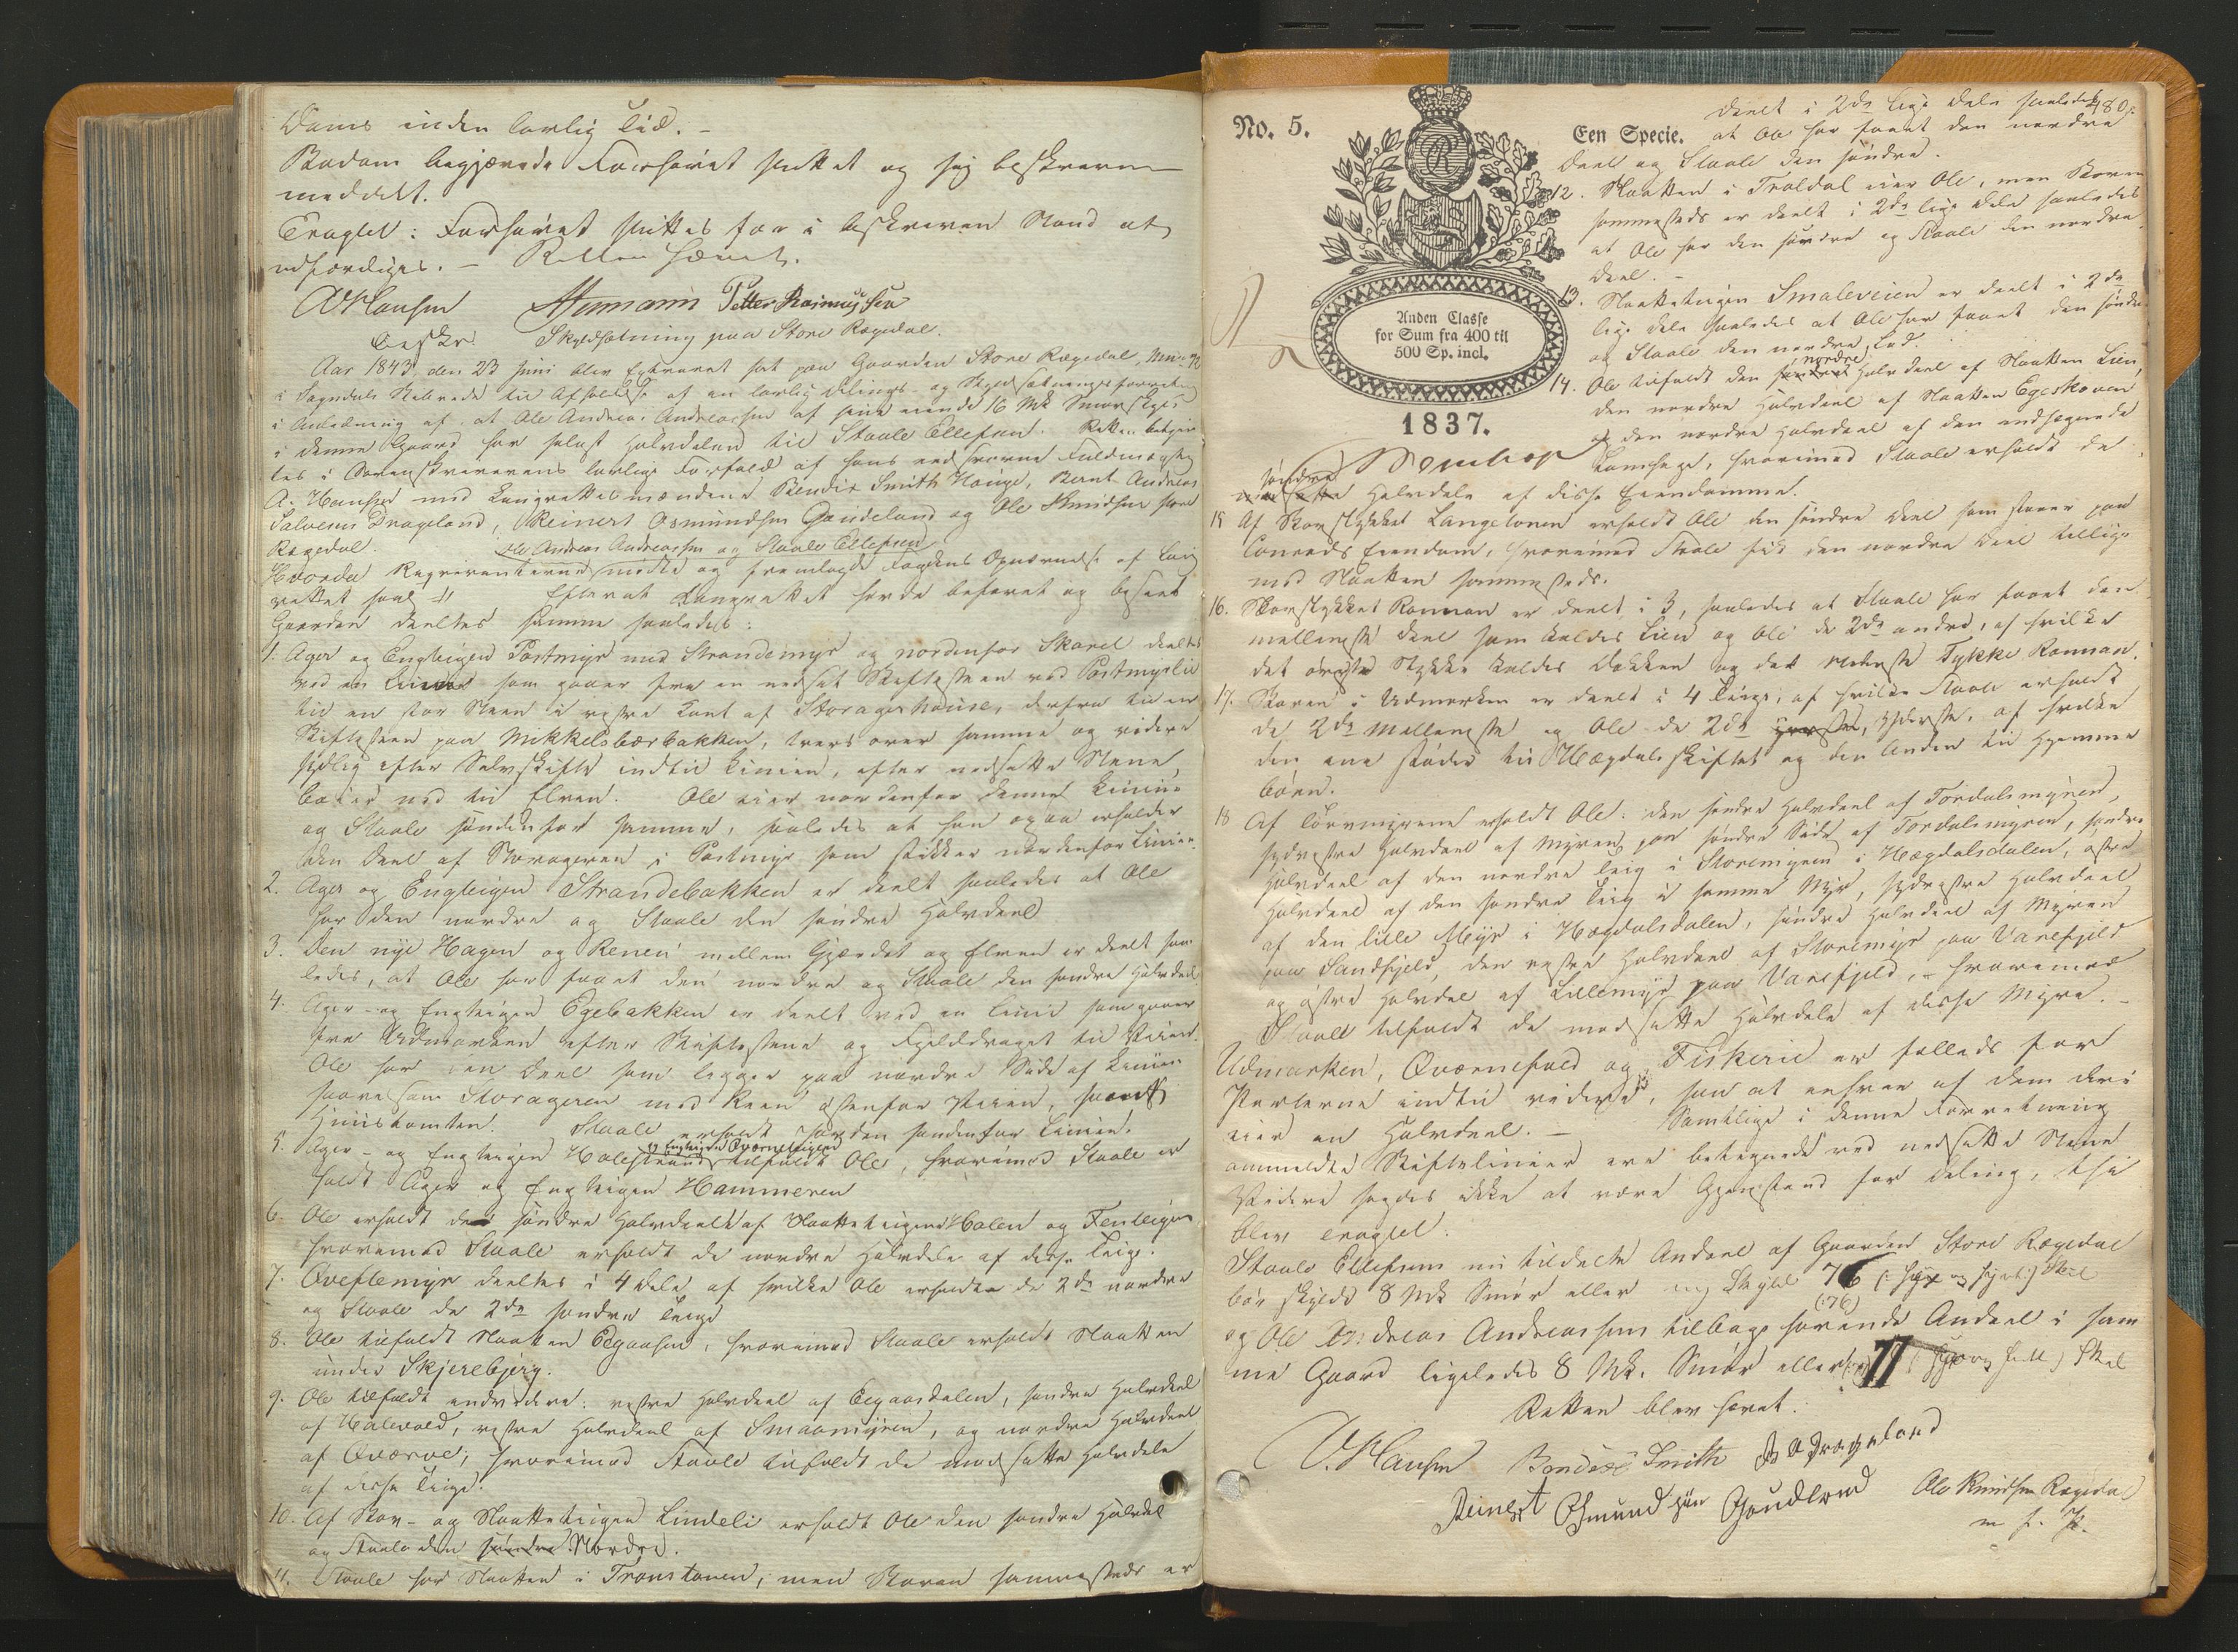 Dom inden lovlig Tid. –
Badom begjærede Forhøret sluttet og sig beskreven
meddelt.
Eragtet: Forhøret sluttes for i beskreven Stand at
udfærdiges. – Retten hævet.
A. Hansen Petter Rasmussen
Beskr. Skyldsætning paa Store Rægedal.
Aar 1843, den 23 Juni blev Extraret sat paa Gaarden Store Rægedal,
i Sogndals Skibrede til Afholdelse af en lovlig Delings- og Skyldsætningsforretning
i Anledning af at Ole Andreas Andreassen af sine eiende 16 Mk Smørskyld
i denne Gaard har solgt Halvdelen til Staale Ellefsen. Retten betjen
tes i Sorenskriverens lovlige Forfald af hans edsvorne Fuldmægtig
A. Hansen med Laugrettesmændene Bendix Smith Hauge, Bernt Andreas
Salvesen Drageland, Reinert Osmundsen Gaudeland og Ole Knudsen store
Rægedal.
Ole Andreas Andreassen og Staale Ellefsen
Hvorda Reqvirenterne mødte og fremlagde Fogdens Opnævnelse af Laug
rettet saal. Efterat Laugrettet havde befaret og beseet
Gaarden deeltes samme saaledes:
1. Ager og Engteigen Postmyr med Strandemyr og nordenfor Skaret deeltes
ved en Linie som gaaer fra en nedsat Skiftesteen ved Postmyrlie
til en stor Steen i vestre Kant af Storagerhouse, derfra til en
Skiftesteen paa Mikkelsbærbakken, tvers over samme og videre
sydlig efter Selvskifte indtil Linien, efter nedsatte Stene
bøier ned til Elven. Ole eier nordenfor denne Linie
og Staale søndenfor samme, saaledes at han ogsaa erholder
den Deel af Storageren i Postmyr som stikker nordenfor Linien.
2. Ager og Engteigen Strandebakken er deelt saaledes at Ole
har den nordre og Staale den søndre Halvdeel
3. Den nye Hagen og Renen mellem Gjærdet og Elven er deelt saa
ledes, at Ole har faaet den nordre og Staale den søndre Halvdeel
4. Ager- og Engteigen Egebakken er deelt ved en Linie som gaaer
fra Udmarken efter Skiftestene og Fjelddraget til Veien.
Ole har den Deel som ligger paa nordre Side af Linien
saavelsom Storageren med Reen østenfor Veien, samt
Huustomten. Staale erholdt Jorden søndenfor Linien.
og Engteigen Qværneteigen
5. Ager- og Engteigen Holestrand tilfaldt Ole, hvorimod Staale er
holdt Ager og Engteigen Hammeren
6. Ole erholdt den søndre Halvdeel af Slaatteteigene Holen og Fenteigen
hvorimod Staale erholdt de nordre Halvdele af disse Teige.
7. Qveflemyr deeltes i 4 Dele af hvilke Ole erholder de 2de nordre
og Staale de 2de søndre Teige
8. Ole tilfaldt Slaatten Egaasen, hvorimod Staale erholdt Slaatten
under Skjerebjerg.
9. Ole tilfaldt endvidere: vestre Halvdeel af Eegaasdalen, søndre Halvdeel
af Halevold, vestre Halvdeel af Smaamyren, og nordre Halvdeel
af Qværve; hvorimod Staale tilfaldt de modsatte Halvdele
af disse Teige.
10. Af Skov- og Slaatteteigen Lindeli erholdt Ole den søndre Halvdel
og Staale den søndre Nordre.
11. Staale har Slaatten i Tronstonen, men Skoven sammesteds er
480.
No. 5.
Een Specie.
Anden Classe
for Sum fra 400 til
500 Sp. incl.
1837.
deelt i 2de lige Dele saaledes
at Ole har faaet den nordre
Deel og Staale den søndre.
12. Slaatten i Traldal eier Ole, men Skoven
sammesteds er deelt i 2de lige Dele saaledes
at Ole har den søndre og Staale den nordre
Deel. –
13. Slaatteteigen Smaleveien er deelt i 2de
lige Dele saaledes at Ole har faaet den søndre
og Staale den nordre Lod.
nordre
14. Ole tilfaldt den søndre Halvdeel af Slaatten Lien,
den nordre Halvdeel af Slaatten Egeskoven
og den nordre Halvdeel af den indhegnede
Lamhage, hvorimod Staale erholdt de
søndre
Halvdele af disse Eiendomme.
15 Af Skovstykket Langelonen erholdt Ole den søndre Deel som støder paa
Conrads Eiendom, hvorimod Staale fik den nordre Deel tillige
med Slaatten sammesteds.
16. Skovstykket Ronnan er deelt i 3, saaledes at Staale har faaet den
mellemste Deel som kaldes Lien og Ole de 2de andre, af hvilke
det øverste Stykke kaldes Bakken og det nederste Tykke Ronnan.
17. Skoven i Udmarken er deelt i 4 Teige, af hvilke Staale erholdt
de 2de mellemste og Ole de 2de yderste, af hvilke
den ene støder til Hægdalsskiftet og den Anden til Hjemme
bøen.
18 Af Torvmyrene erholdt Ole: den søndre Halvdeel af Tordalsmyren,
sydvestre Halvdeel af Myren paa søndre Side af Tordalsmyren, søndre
Halvdeel af den nordre Teig i Storemyren i Hægdalsdalen, østre
Halvdeel af den søndre Teig i samme Myr, sydvestre Halvdeel
af den lille Myr i Hægdalsdalen, søndre Halvdeel af Myren
paa Sandfjeld, den vestre Halvdeel af Storemyr paa Varefjeld
og østre Halvdel af Lillemyr paa Varefjeld, – hvorimod
Staale tilfaldt de modsatte Halvdele af disse Myre. –
Udmarken, Qværnefald og Fiskerie er fælleds for
Parterne indtil videre, saa at enhver af dem deri
eier en Halvdeel. – Samtlige i denne Forretning
ommeldte Skiftelinier ere betegnede ved nedsatte Stene
Videre sagdes ikke at være Gjenstand for Deling, thi
blev eragtet:
Staale Ellefsens nu tildelte Andeel af Gaarden Store Rægedal
bør skylde 8 Mk Smør eller ny Skyld 76 Skil
(:76)
og Ole Andreas Andreassens tilbagehavende Andeel i sam
me Gaard ligeledes 8 Mk. Smør eller 77 Skil
Retten blev hævet.
A. Hansen Bendix Smith B A Drageland
Reinert Osmundsøn Goudland Ole Knudsen Rægedal
m. f. P.